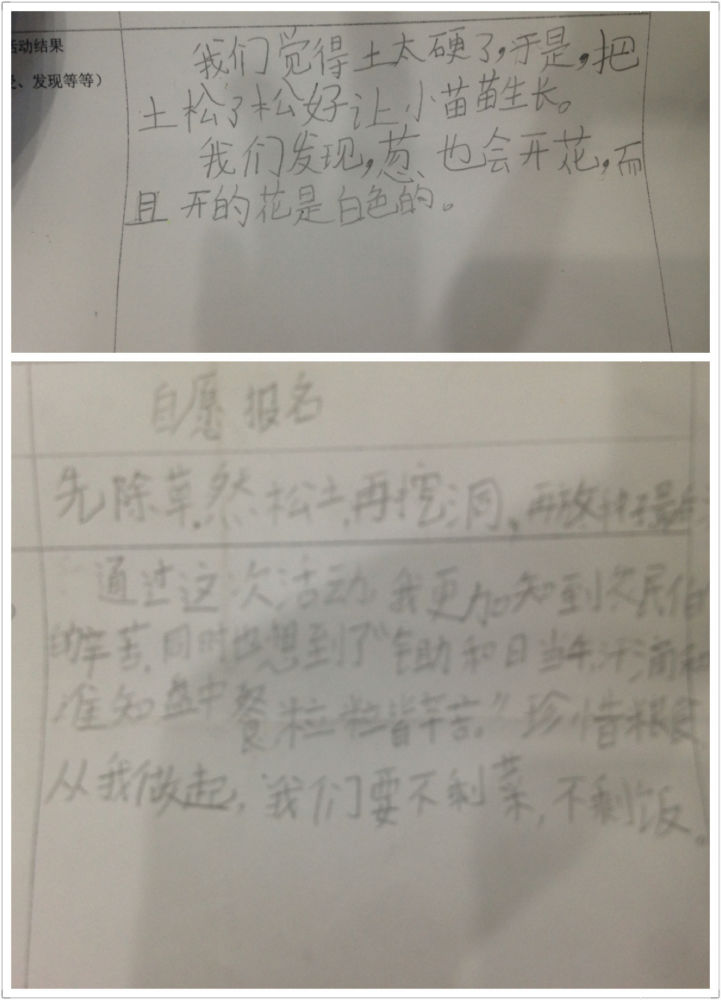 活动结果
、发现等等）
我们觉得土太硬了,于是,把
土松了松好让小苗苗生长。
我们发现,葱也会开花,而
且开的花是白色的。
自愿报名
先除草,然松土,再挖洞,再放
通过这次活动,我更加知到农民伯
的辛苦,同时也想到了“锄和日当午,汗滴和
准知盘中餐,粒粒皆辛苦。”珍惜粮食
从我做起,我们要不剩菜,不剩饭。